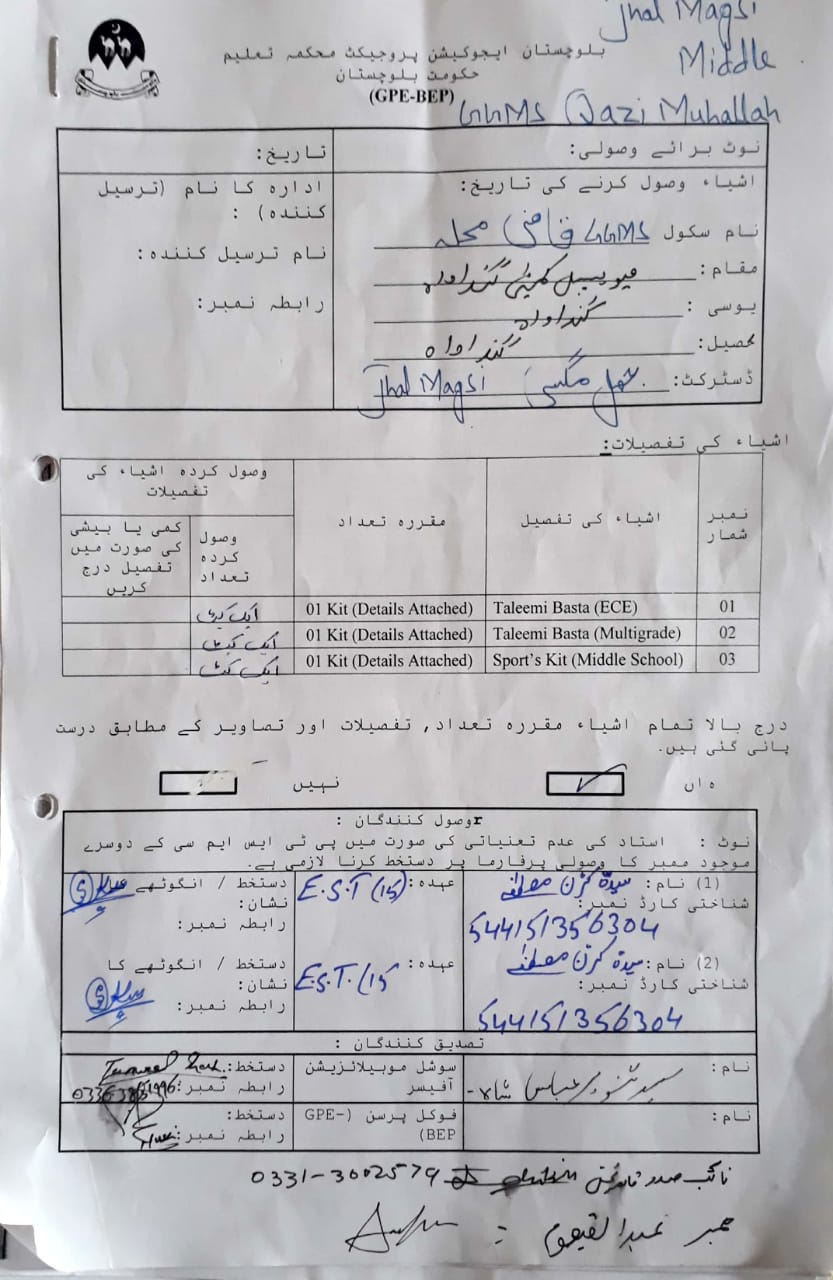 Jhal Magsi
Middle
GGMS Qazi Muhallah
بلوچستان ایجوکیشن پروجیکٹ محکمہ تعلیم
حکومت بلوچستان
(GPE-BEP)
نوٹ برائے وصولی:
تاریخ:
اشیاء وصول کرنے کی تاریخ:
نام سکول GGMS قاضی محلہ
مقام: میونسپل کمیٹی گنداواہ
یوسی : گنداواہ
تحصیل: گنداواہ
ڈسٹرکٹ: جھل مگسی Jhal Magsi
ادارہ کا نام (ترسیل
کنندہ) :
نام ترسیل کنندہ:
رابطہ نمبر:
اشیاء کی تفصیلات:
نمبر شمار
اشیاء کی تفصیل
مقررہ تعداد
وصول کردہ اشیاء کی تفصیلات
وصول کردہ تعداد
کمی یا بیشی کی صورت میں تفصیل درج کریں
01 Taleemi Basta (ECE) 01 Kit (Details Attached) ایک کٹ
02 Taleemi Basta (Multigrade) 01 Kit (Details Attached) ایک کٹ
03 Sport's Kit (Middle School) 01 Kit (Details Attached) ایک کٹ
درج بالا تمام اشیاء مقررہ تعداد, تفصیلات اور تصاویر کے مطابق درست
پائی گئی ہیں.
ہاں ✓ نہیں
rوصول کنندگان :
نوٹ : استاد کی عدم تعنیاتی کی صورت میں پی ٹی ایس ایم سی کے دوسرے
موجود ممبر کا وصولی پرفارما پر دستخط کرنا لازمی ہے.
(1) نام: سیدہ کرن مصطفیٰ
شناختی کارڈ نمبر:
544151356304
عہدہ: E.S.T (15)
دستخط / انگوٹھے
نشان:
رابطہ نمبر:
(2) نام: سیدہ کرن مصطفیٰ
شناختی کارڈ نمبر:
544151356304
عہدہ: E.S.T. (15
دستخط / انگوٹھے کا
نشان:
رابطہ نمبر:
تصدیق کنندگان :
نام: سید تنویر عباس شاہ
سوشل موبیلائزیشن
آفیسر
دستخط:
رابطہ نمبر:
نام:
فوکل پرسن (GPE-
BEP)
دستخط:
رابطہ نمبر:
نائب صدر 0331-3002579
ممبر عبدالقیوم